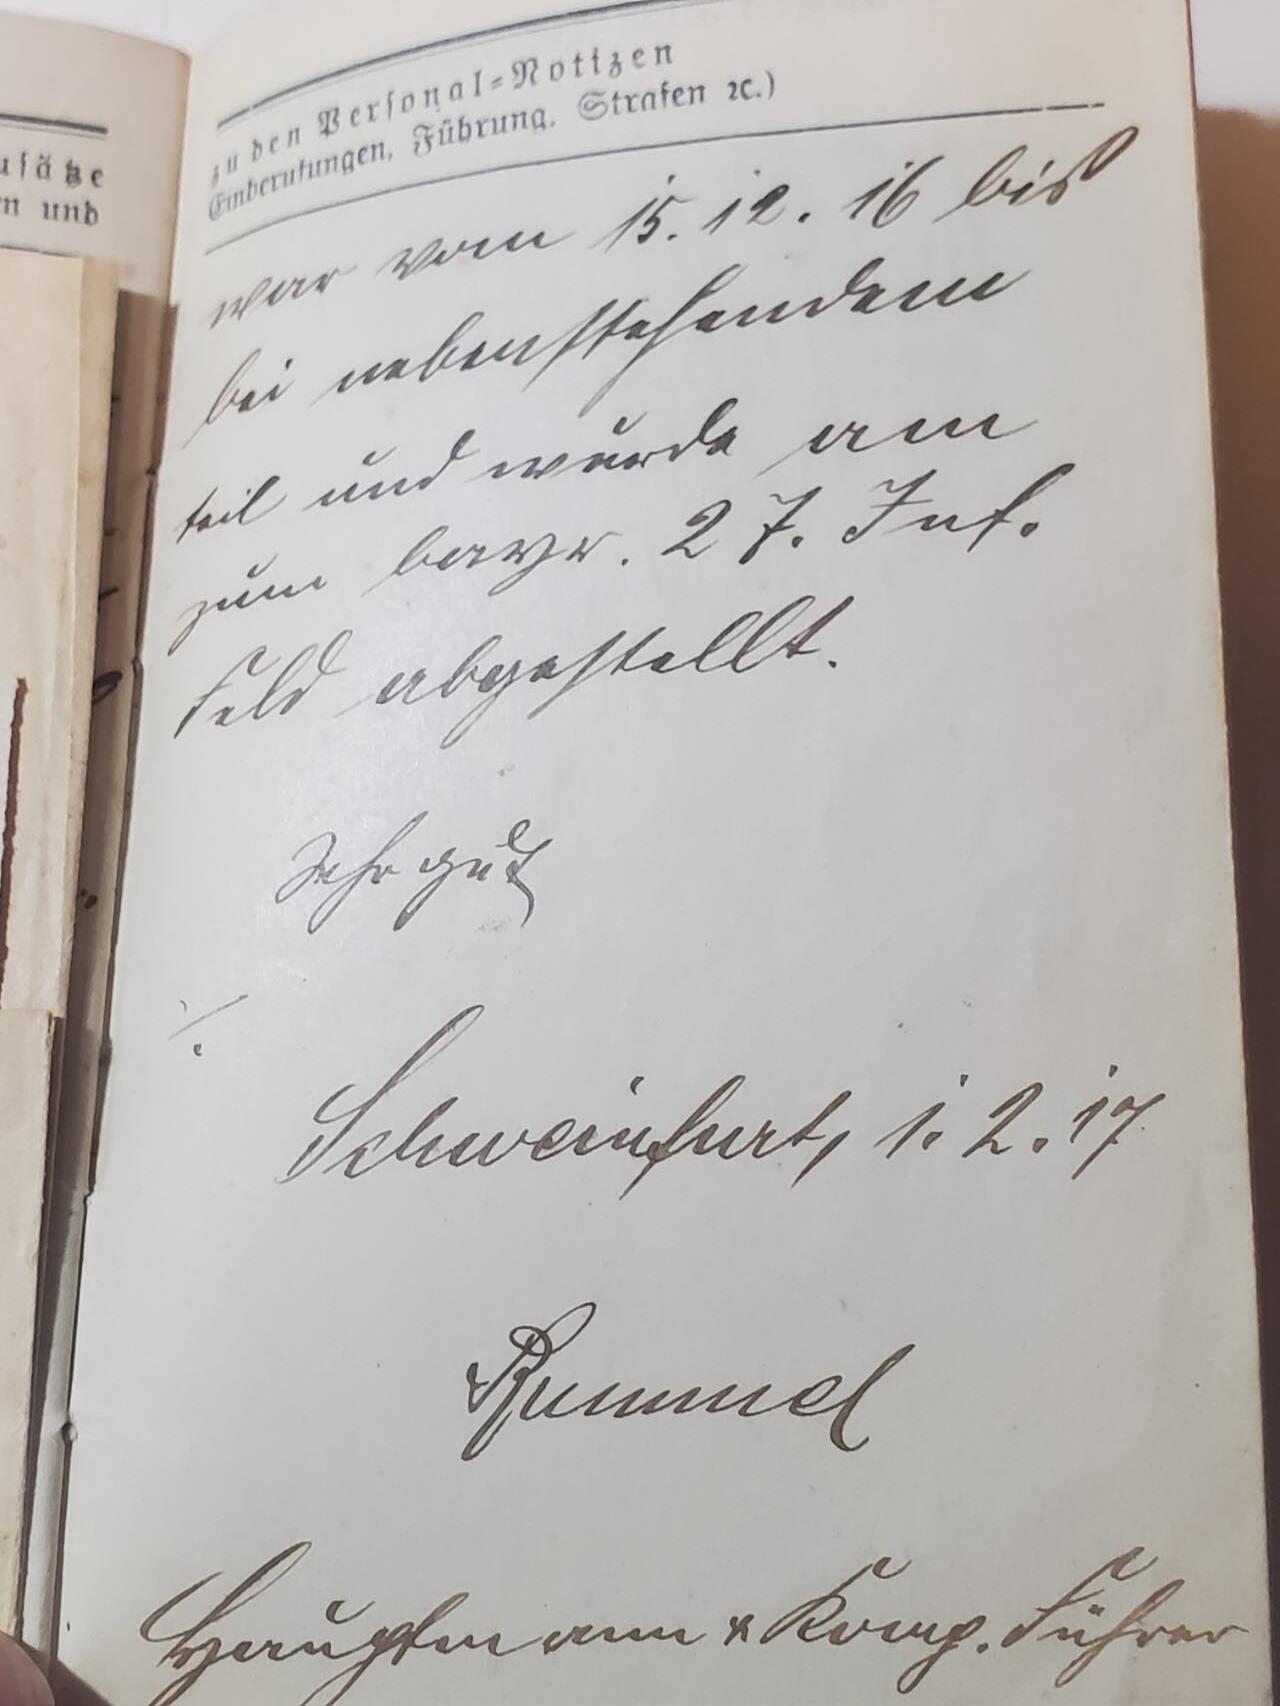 usätze
n und
zu den Personal=Notizen
Einberufungen, Führung, Strafen ꝛc.)
war vom 15. 12. 16 bis
bei nebenstehendem
teil und wurde am
zum bayr. 27. Inf.
Feld abgestellt.
Sehr gut
Schweinfurt, 1. 2. 17.
Rummel
Hauptmann & Komp. Führer